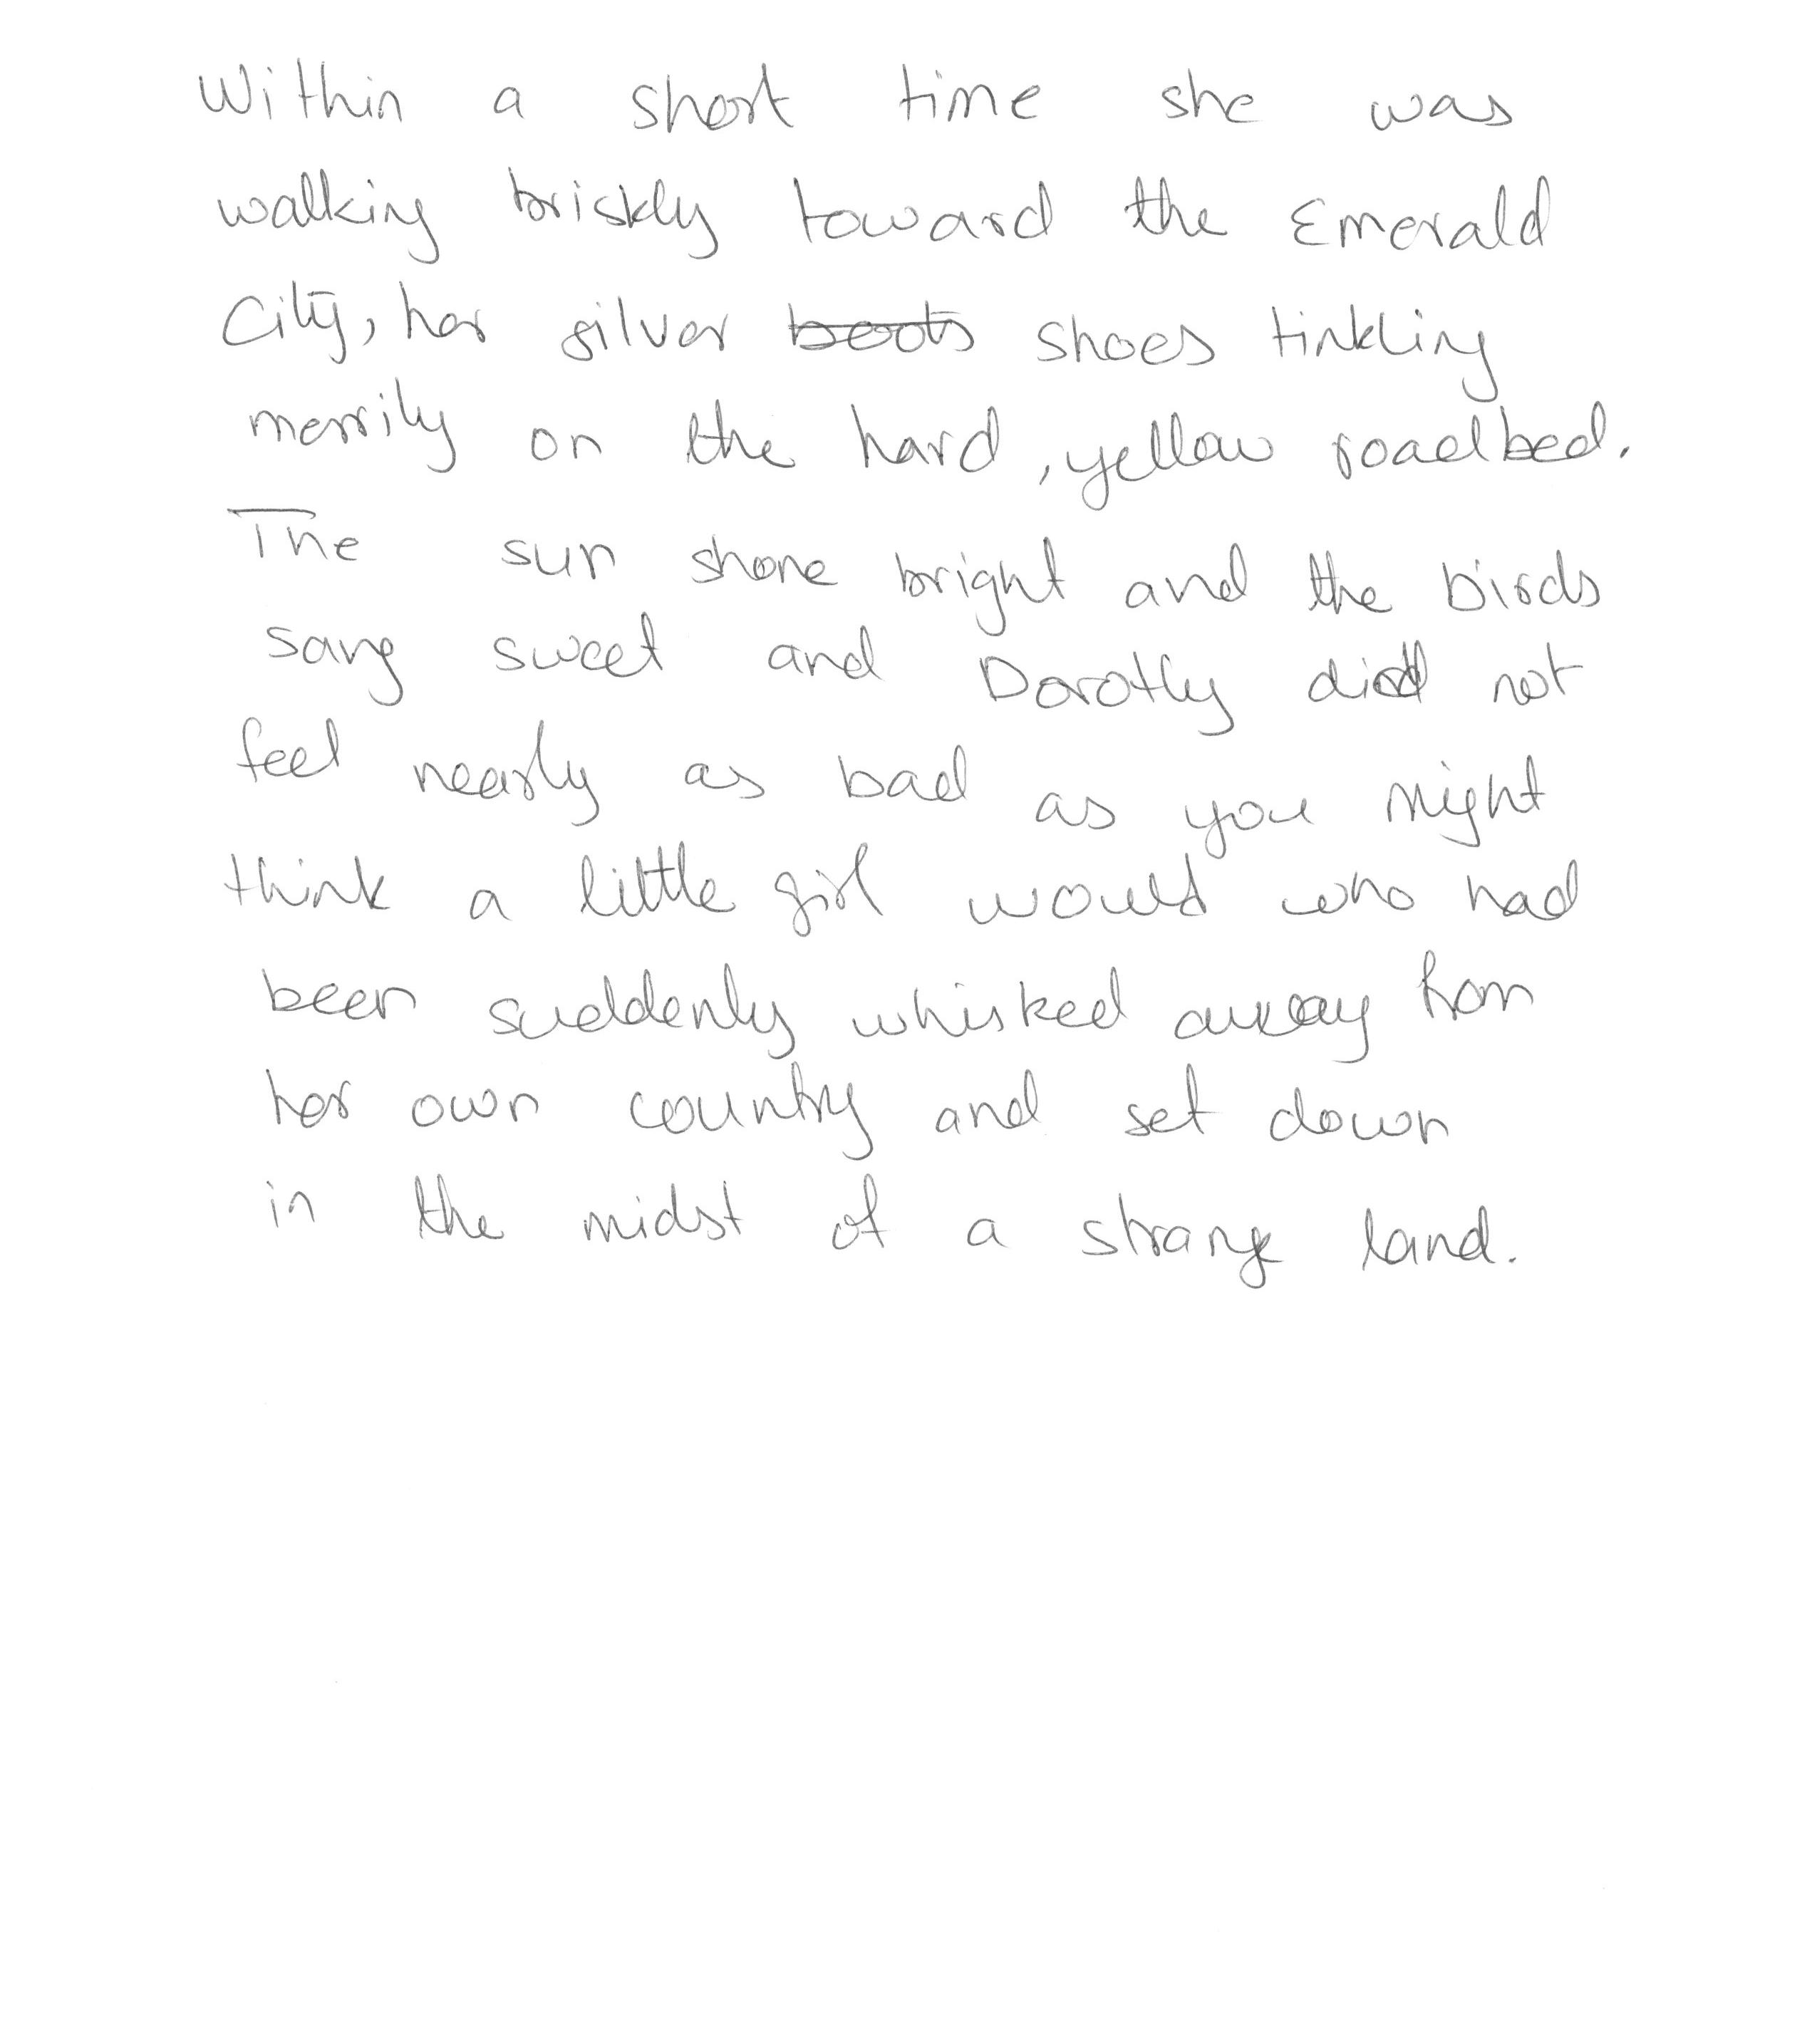 Within a short time she was
walking briskly toward the Emerald
City, her silver boots shoes tinkling
merrily on the hard, yellow roadbed.
The sun shone bright and the birds
sang sweet and Dorothy did not
feel nearly as bad as you might
think a little girl would who had
been suddenly whisked away from
her own country and set down
in the midst of a strange land.